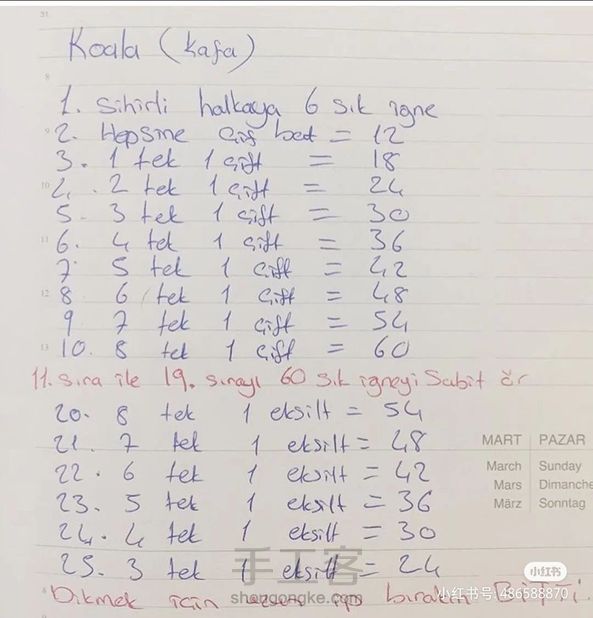 31.
Koala (kafa)
8
1. Sihirli halkaya 6 sık iğne
9 2. Hepsine çif bat = 12
3. 1 tek 1 çift = 18
10 4. 2 tek 1 çift = 24
5. 3 tek 1 çift = 30
11 6. 4 tek 1 çift = 36
7. 5 tek 1 çift = 42
12 8 6 tek 1 çift = 48
9 7 tek 1 çift = 54
13 10. 8 tek 1 çift = 60
11. sıra ile 19. sırayı 60 sık iğneyi Sabit ör
20. 8 tek 1 eksilt = 54
21. 7 tek 1 eksilt = 48
MART PAZAR
22. 6 tek 1 eksilt = 42
March Sunday
23. 5 tek 1 eksilt = 36
Mars Dimanche
März Sonntag
24. 4 tek 1 eksilt = 30
25. 3 tek 1 eksilt = 24
手工客
小红书
Dikmek için uzun ip bırakın BİTTİ.
shougongke.com
小红书号: 486588870